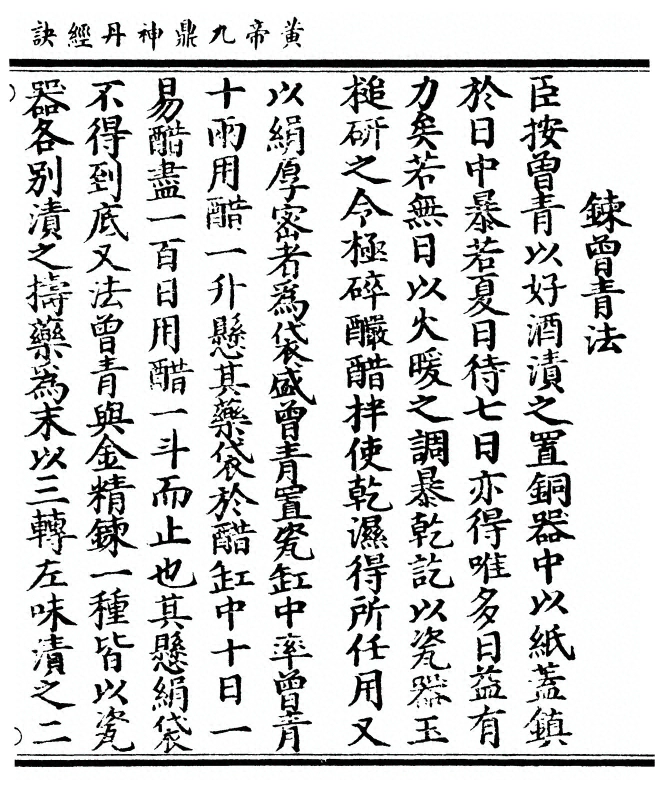 黃帝九鼎神丹經訣
鍊曾青法
臣按曾青以好酒漬之置銅器中以紙蓋鎮
於日中暴若夏日待七日亦得唯多日益有
力矣若無日以火暖之調暴乾訖以瓷器玉
槌研之令極碎釅醋拌使乾濕得所任用又
以絹厚密者為袋盛曾青置瓷缸中率曾青
十兩用醋一升懸其藥袋於醋缸中十日一
易醋盡一百日用醋一斗而止也其懸絹袋
不得到底又法曾青與金精鍊一種皆以瓷
器各別漬之擣藥為末以三轉左味漬之二